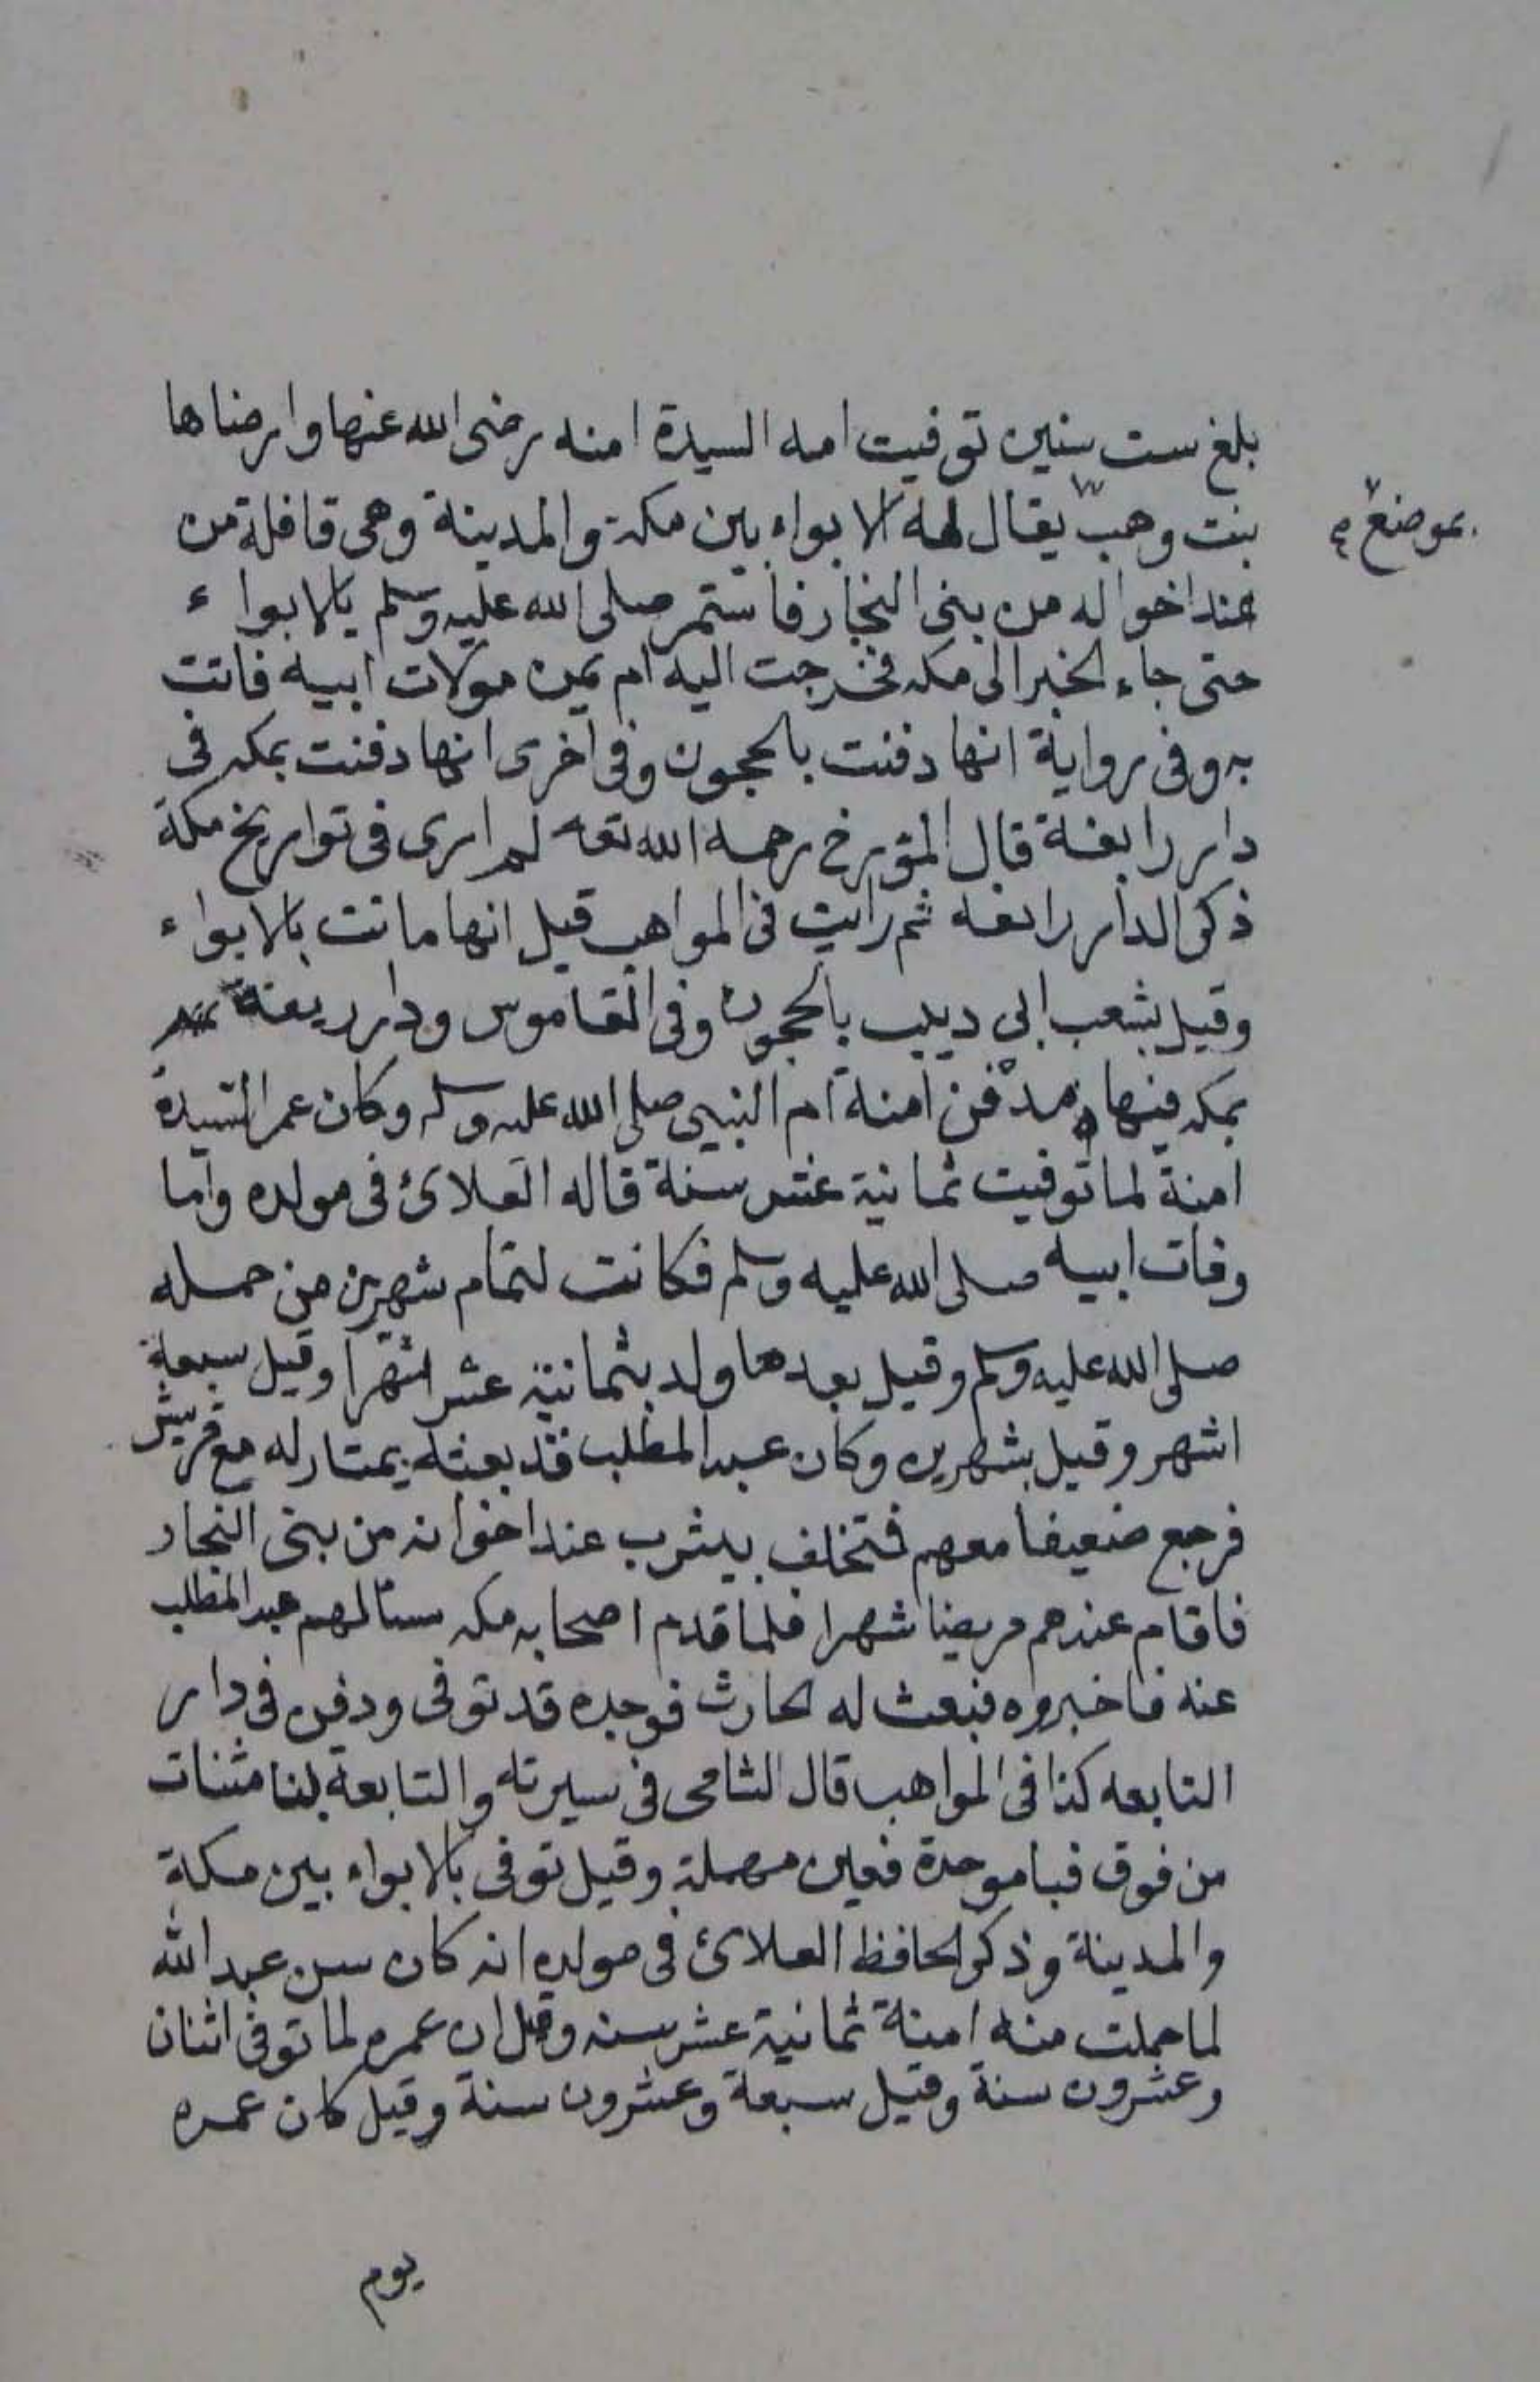 بلغ ست سنين توفيت امه السيدة امنه رضى الله عنها وارضاها
بنت وهب يقال لها الابواء بين مكة والمدينة وهى قافلة من
بموضع
عند اخواله من بنى النجار فاستمر صلى الله عليه وسلم بالابواء
حتى جاء الخبر الى مكه فخرجت اليه ام يمن مولات ابيه فاتت
به وفى رواية انها دفنت بالحجون وفى اخرى انها دفنت بمكه فى
دار رابغة قال المؤرخ رحمه الله تعه لم ارى فى تواريخ مكة
ذكر الدار رابعه ثم رايت فى المواهب قيل انها ماتت بالابواء
وقيل بشعب ابى ديب بالحجون وفى القاموس ودار ريغة
بمكه فيها مدفن امنة ام النبى صلى الله عليه وسلم وكان عمر السيدة
امنة لما توفيت ثمانية عشر سنة قاله العلائ فى مولده واما
وفات ابيه صلى الله عليه وسلم فكانت لتمام شهرين من حمله
صلى الله عليه وسلم وقيل بعدها ولد بثمانية عشر اشهرا وقيل سبعة
اشهر وقيل بشهرين وكان عبد المطلب قد بعثه يمتار له مع قريش
فرجع ضعيفا معهم فتخلف بيثرب عند اخوانه من بنى النجار
فاقام عندهم مريضا شهرا فلما قدم اصحابه مكه سئالهم عبد المطلب
عنه فاخبروه فبعث له الحارث فوجده قد توفى ودفن فى دار
التابعه كذا فى المواهب قال الشامى فى سيرته والتابعة بتا مثنات
من فوق فبا موحدة فعين مهملة وقيل توفى بالابواء بين مكة
والمدينة وذكر الحافظ العلائ فى مولده انه كان سن عبد الله
لما حملت منه امنة ثمانية عشر سنه وقيل ان عمره لما توفى اثنان
وعشرون سنة وقيل سبعة وعشرون سنة وقيل كان عمره
يوم